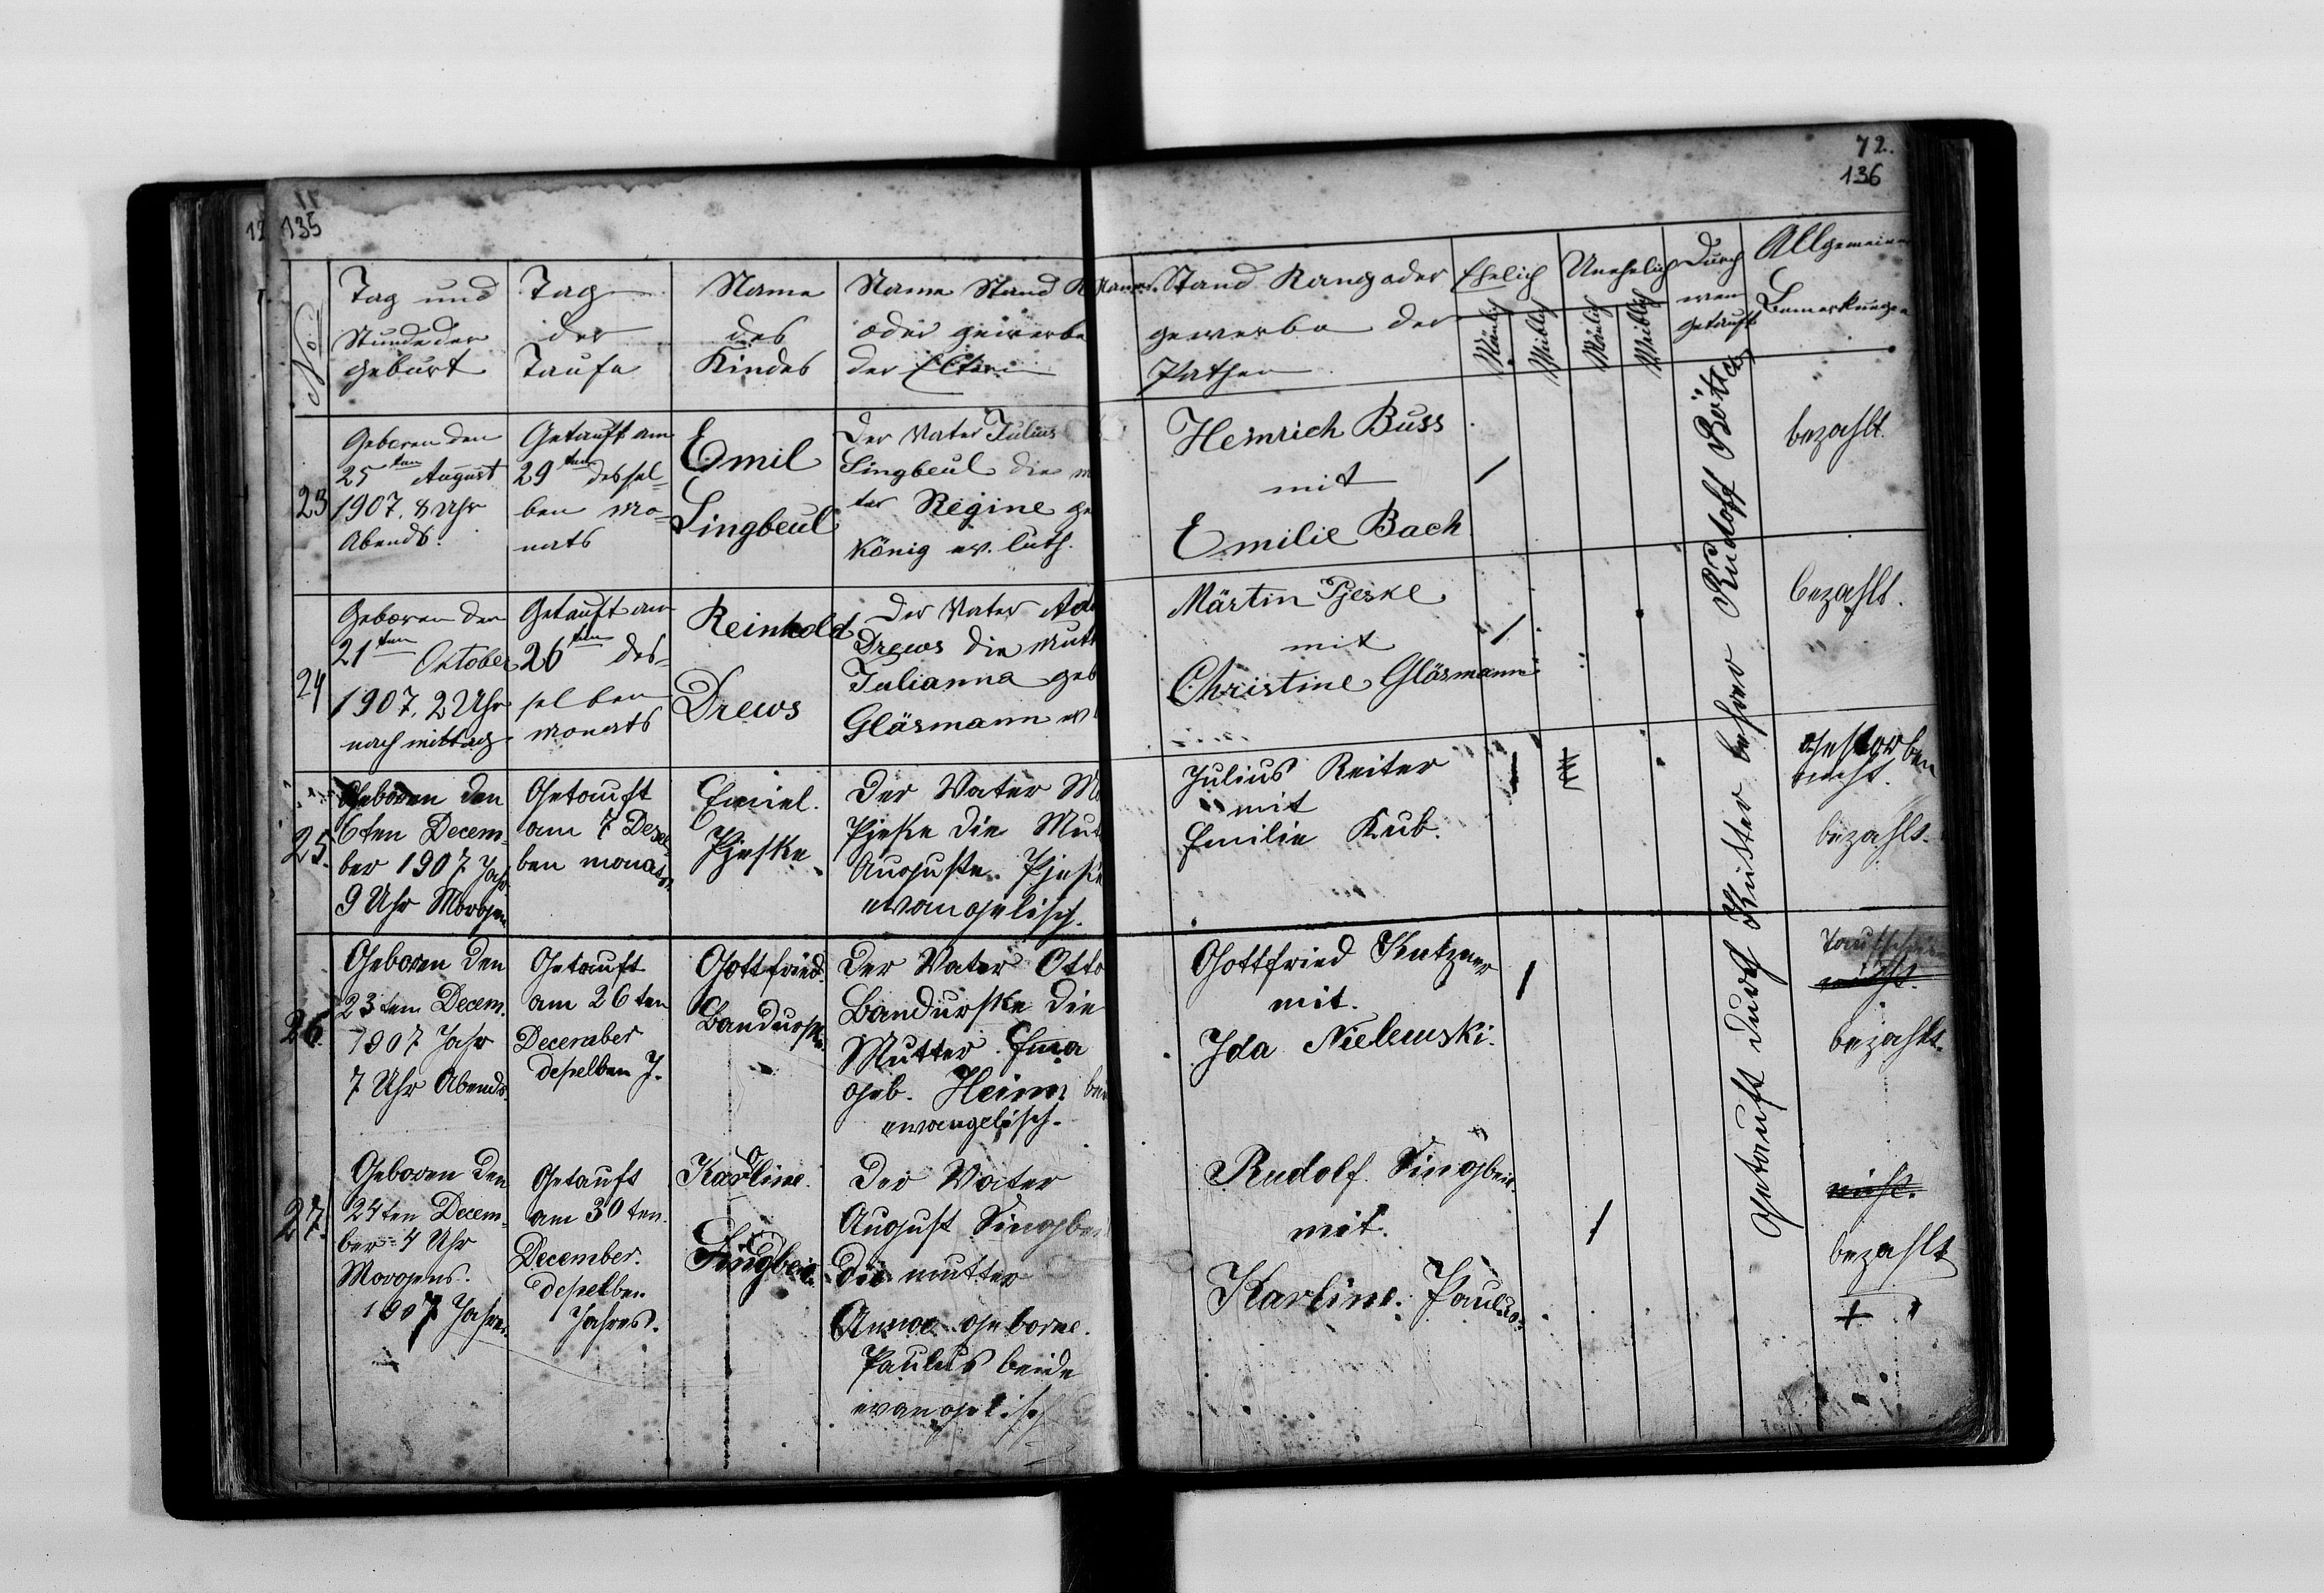 72.
136
135
No
Tag und
Stunde der
geburt
Tag
der
Taufe
Name
des
Kindes
Name Stand R
oder gewerbe
der Eltern
Name. Stand Rang oder
gewerbe der
Pathen
Ehelich
Unehelich
Mänlich
Weiblich
Mänlich
Weiblich
Durch
wen
getauft
Allgemeine
Bemerkungen
23
Geboren den
25ten August
1907. 8 Uhr
Abends.
Getauft am
29ten dessel=
ben Mo=
nats
Emil
Singbeul
Der Vater Julius
Singbeul die m
ter Regine ge
König ev. luth.
Heinrich Buss
mit
Emilie Bach
bezahlt.
24
Geboren den
21ten Oktober
1907. 2 Uhr
nach mittag
Getauft am
26ten des=
selben
monats
Reinhold
Drews
Der Vater Ad
Drews die Mutt
Julianna geb
Gläsmann ev
Märtin Pjeske
mit
Christine Gläsmann
bezahlt.
25.
Geboren den
6ten Decem=
ber 1907 Jahr
9 Uhr Morgen
Getauft
am 7 Desel=
ben monats.
Emiel.
Pjeske.
Der Vater M
Pjeske die Mut
Auguste. Pjeske
evangelisch.
Julius Reiter
mit
Emilie Kub.
Gestorben
nicht.
bezahlt.
26.
Geboren den
23ten Decem.
1907 Jahr
7 Uhr Abends.
Getauft
am 26ten
December
deselben J.
Gottfried.
Bandurske.
Der Vater Otto
Bandurske die
Mutter Ema
geb. Heim bei
evangelisch.
Gottfried Kutzner
mit.
Ida Nielewski.
Taufschein
nicht.
bezahlt.
27.
Geboren den
24ten Decem=
ber 4 Uhr
Morgens.
1907 Jahres.
Getauft
am 30ten.
December.
deselben
Jahres.
Karline.
Singbeil.
Der Vater
August Singbei
die mutter
Anna geborne.
Paulus beide
evangelisch
Rudolf Singbeil.
mit.
Karline. Paulus.
nicht.
bezahlt
+
Getauft durch Küster Lehrer Rudolf Böttch